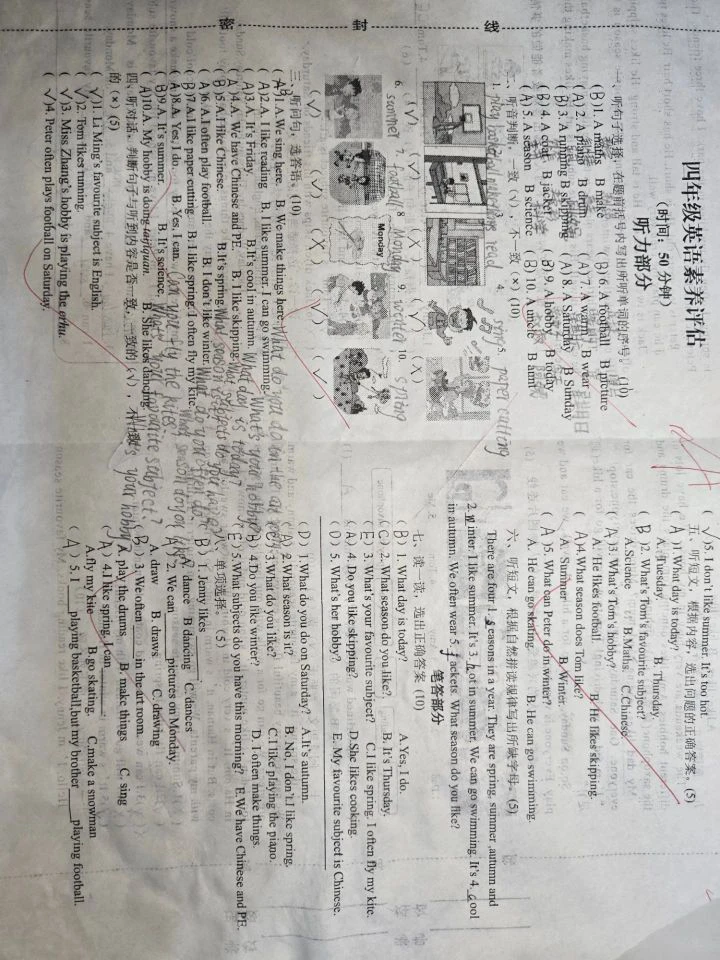 密 封 线
四年级英语素养评估
(时间：50 分钟)
听力部分
一、听句子选择，在题前括号内写出所听单词的序号。(10)
(B)1. A maths B make (B)6. A football B picture
(A)2. A piano B drum (A)7. A warm B wear
(B)3. A running B skipping (A)8. A Saturday B Sunday
(B)4. A coat B jacket (B)9. A hobby B today
(A)5. A season B science (B)10. A uncle B aunt
二、听音判断，一致 (√)，不一致 (×) (10)
1. play basketball read 4. sing 5. paper cutting
(√) (√) (×) (×)
6. summer 7. football 8. Monday 9. winter 10. spring
Monday
(√) (√) (×) (√) (√)
三、听问句，选答语。(10)
1. A. We sing here. B. We make things here. What do you do in the art
(A)2. A. I like reading B. I like summer. I can go swimming. What's your hobby?
(A)3. A. It's Friday. B.It's cool in autumn. What day is today?
(A)4. A. We have Chinese and PE. B. I like skipping. What subjects do you have
(B)5.A.I like Chinese. B.It's spring. What season is
(A)6. A.I often play football. B. I don't like winter. What do you often do
(B)7.A.I like paper cutting. B. I like spring. I often fly my kite. What season do you like
(A)8.A. Yes, I do B. Yes, I can. Can you fly the kites?
(B)9.A. It's summer. B. It's science. What's your favourite subject?
(A)10.A. My hobby is doing taijiquan. B. She likes dancing What's your hobby?
四、听对话。判断句子与听到内容是否一致，一致的 (√)，不一致
的 (×) (5)
(√)1. Li Ming's favourite subject is English.
(√)2. Tom likes running.
(√)3. Miss Zhang's hobby is playing the erhu.
(√)4. Peter often plays football on Saturday.
(√)5. I don't like summer. It's too hot
五、听短文，根据内容，选出问题的正确答案。(5)
(A)1.What day is today?
A. Tuesday. B. Thursday.
(B)2. What's Tom's favourite subject?
A.Science B.Maths. C Chinese.
(A)3. What's Tom's hobby?
A. He likes football. B. He likes skipping.
(A)4.What season does Tom like?
A. Summer B. Winter.
(A)5. What can Peter do in winter?
A. He can go skating. B. He can go swimming.
六、听短文，根据自然拼读规律写出所缺字母。(5)
There are four 1. s easons in a year. They are spring, summer ,autumn and
2. w inter. I like summer. It's 3. h ot in summer. We can go swimming. It's 4. c ool
in autumn. We often wear 5. j ackets. What season do you like?
笔答部分
七、读一读，选出正确答案 (10)
(B) 1. What day is today? A.Yes, I do.
(C) 2. What season do you like? B.It's Thursday.
(E) 3. What's your favourite subject? C.I like spring. I often fly my kite.
(A) 4. Do you like skipping? D.She likes cooking.
(D) 5. What's her hobby? E.My favourite subject is Chinese.
(D) 1.What do you do on Saturday? A.It's autumn.
(A) 2.What season is it? B. No, I don't.I like spring.
3.What do you like? C.I like playing the piano.
(B) 4.Do you like winter? D. I often make things.
(E) 5.What subjects do you have this morning? E.We have Chinese and PE.
八、单项选择。(5)
(B) 1. Jenny likes ____.
A. dance B dancing C. dances
(A) 2. We can ____ pictures on Monday.
A. draw B. draws C. drawing
(B) 3. We often ____ in the art room.
A. play the drums B. make things C. sing
(A) 4.I like spring. I can ____.
A.fly my kite B.go skating. C.make a snowman
(A) 5. I ____ playing basketball,but my brother ____ playing football.